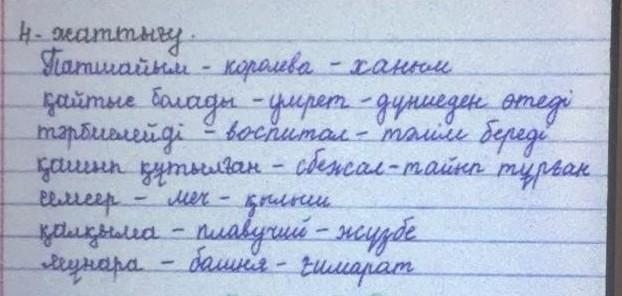 4-жаттығу.
Патшайым - королева - ханым
қайтыс болады - умрет - дүниеден өтеді
тәрбиелейді - воспитал - тәлім береді
қашып құтылған - сбежал - тайып тұрған
семсер - меч - қылыш
қалқыма - плавучий - жүзбе
мұнара - башня - ғимарат